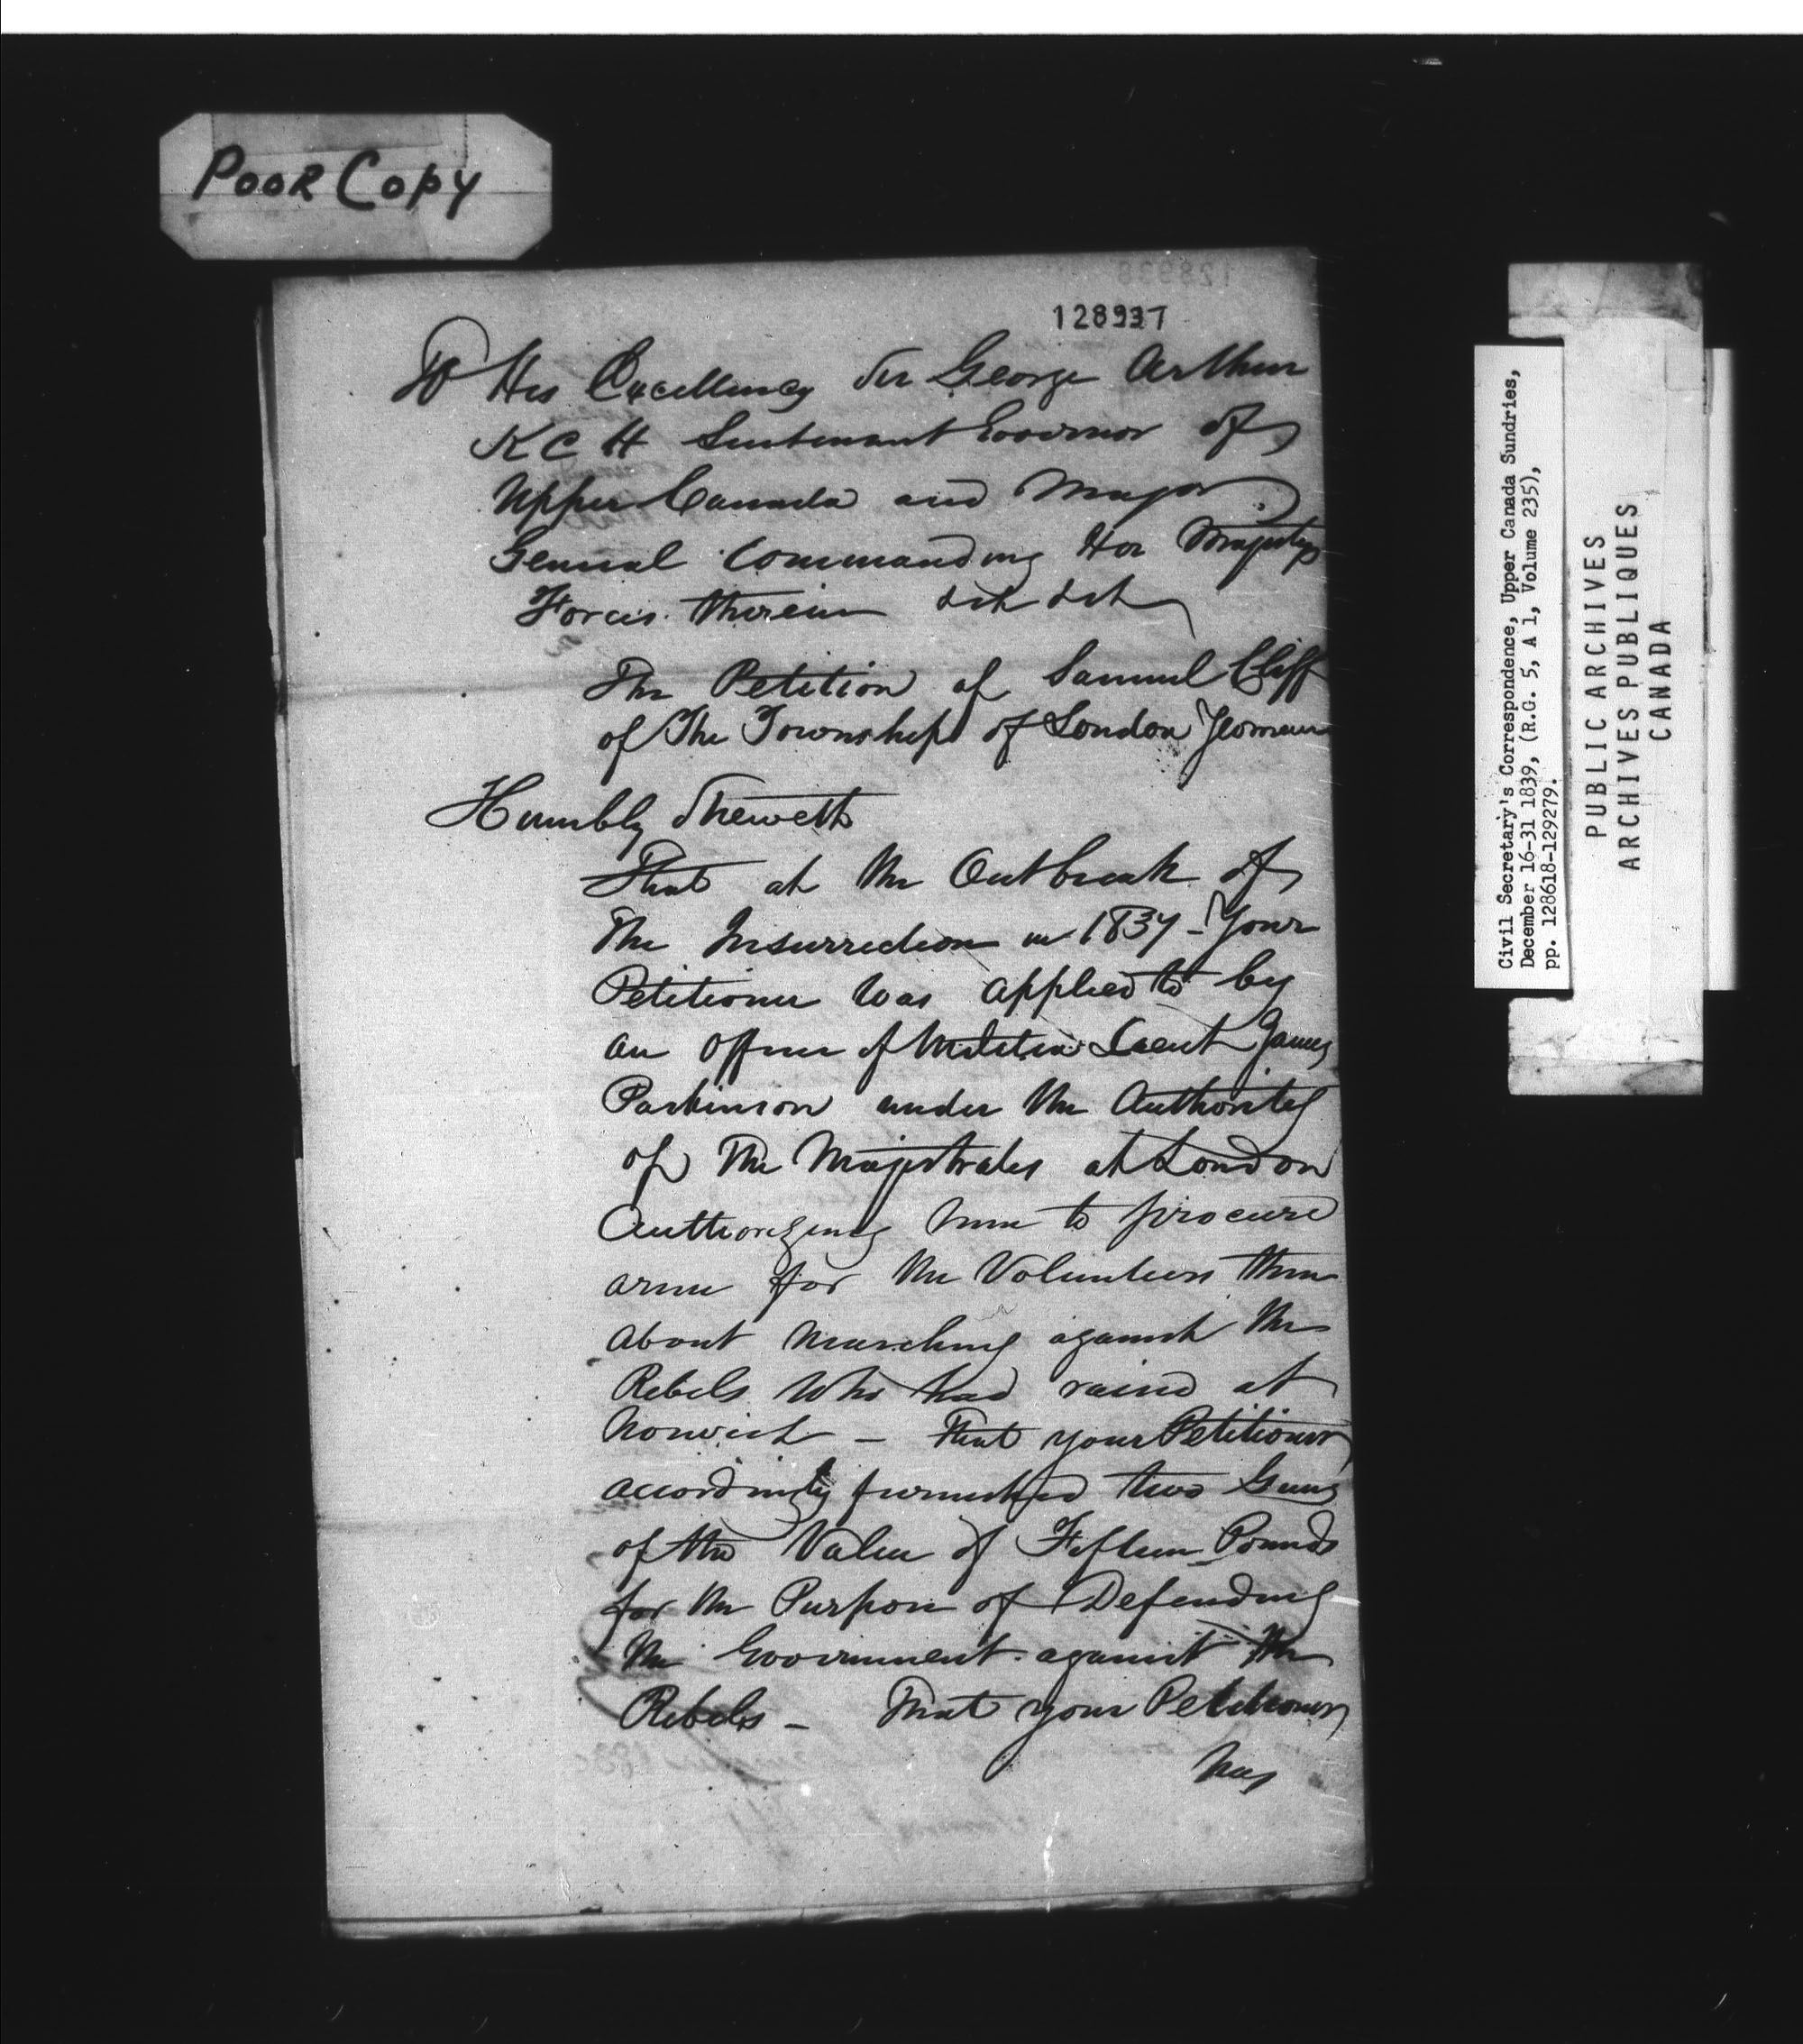 POOR COPY
128937
To His Excellency Sir George Arthur
K C H Lieutenant Governor of
Upper Canada and Major
General Commanding Her Majestys
Forces therein &c &c
The Petition of Samuel Cliff
of The Township of London Yeoman
Humbly Sheweth
That at the Outbreak of
The Insurrection in 1837 - Your
Petitioner was applied to by
an Officer of Militia Lieut James
Parkinson under the Authority
of The Majistrates at London
Authorizing him to procure
arms for the Volunteers then
about marching against the
Rebels who had raised at
Norwich - That your Petitioner
accordingly furnished two Guns
of the Value of Fifteen Pounds
for the Purpose of Defending
the Government against the
Rebels - That your Petitioner
has
Civil Secretary's Correspondence, Upper Canada Sundries,
December 16-31 1839, (R.G. 5, A 1, Volume 235),
pp. 128618-129279.
PUBLIC ARCHIVES
ARCHIVES PUBLIQUES
CANADA